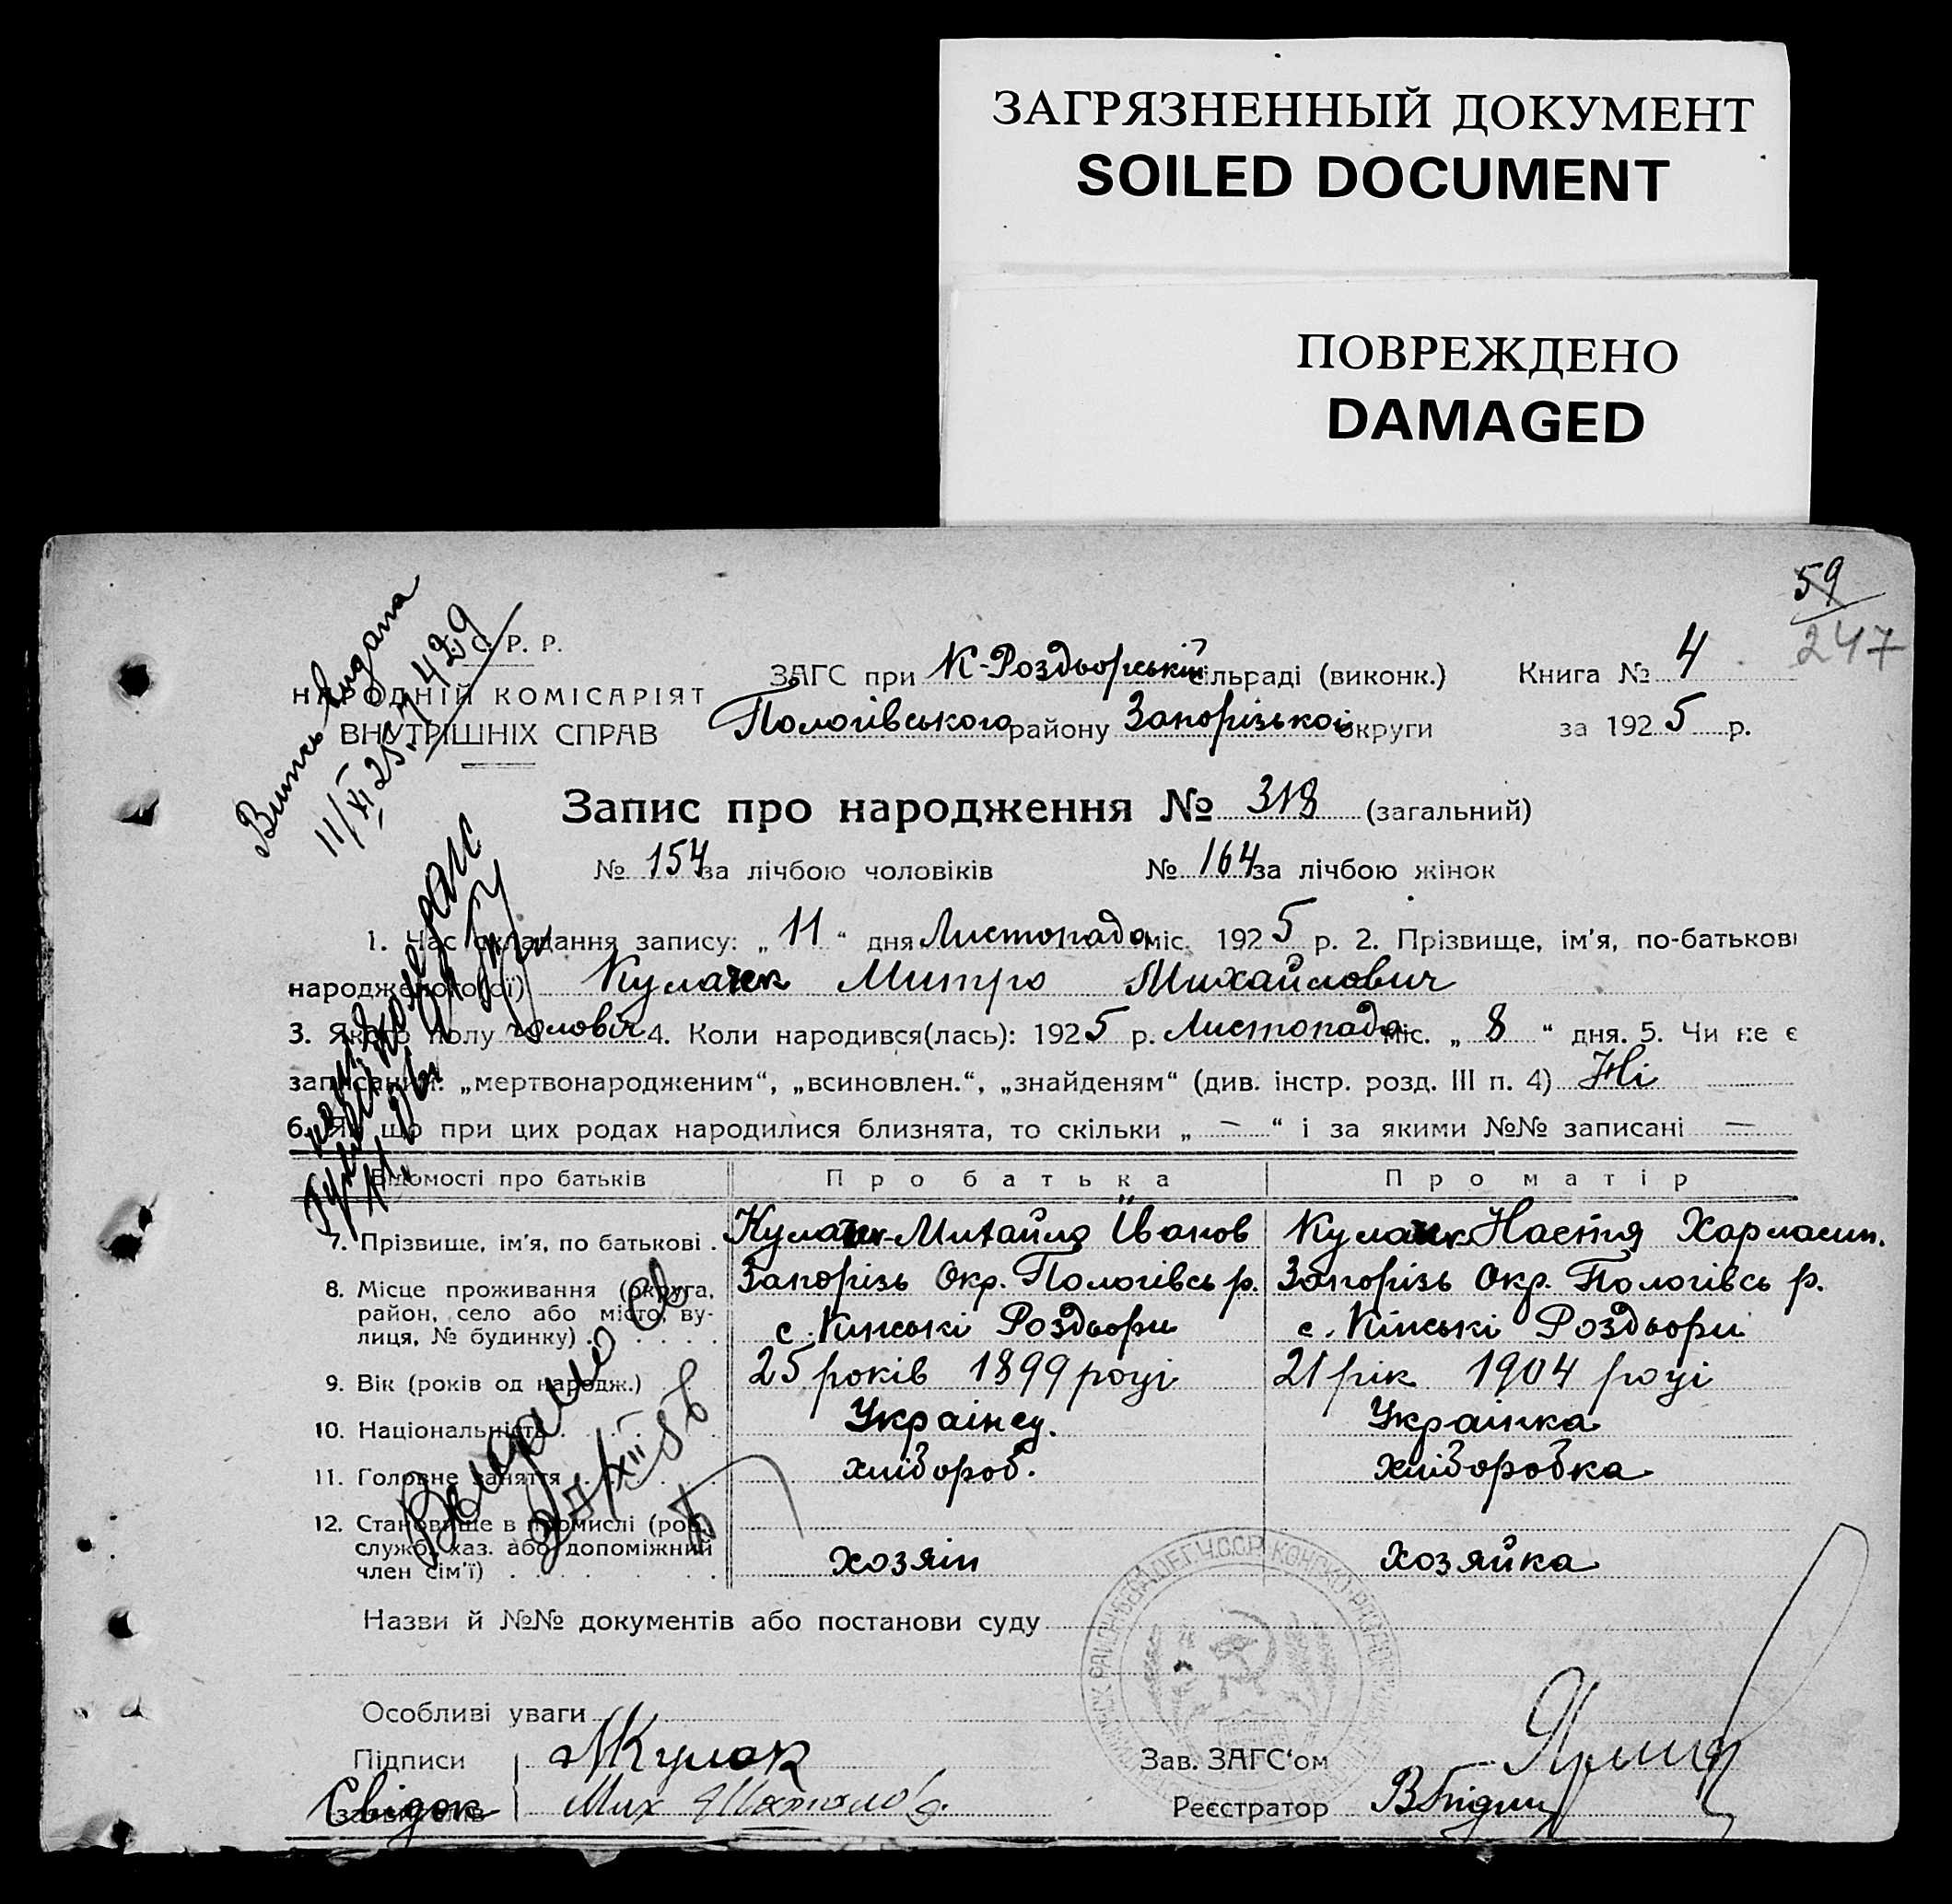 ЗАГРЯЗНЕННЫЙ ДОКУМЕНТ
SOILED DOCUMENT
ПОВРЕЖДЕНО
DAMAGED
59
247
Р. Р.
НАРОДНІЙ КОМІСАРІЯТ
ВНУТРІШНІХ СПРАВ
ЗАГС при К-Роздорській сільраді (виконк.) Книга № 4
Пологівського району Запорізької округи за 1925 р.
Запис про народження № 318 (загальний)
№ 154 за лічбою чоловіків № 164 за лічбою жінок
1. Час складання запису: „ 11 “ дня Листопада міс. 1925 р. 2. Прізвище, ім'я, по-батькові
народженого(ої) Митро Михайлович
3. Якого полу чоловіч 4. Коли народився(лась): 1925 р. Листопада міс. „ 8 “ дня. 5. Чи не є
записаний: „мертвонародженим“, „всиновлен.“, „знайденям“ (див. інстр. розд. III п. 4) Ні
6. Як що при цих родах народилися близнята, то скільки „ — “ і за якими №№ записані —
Відомості про батьків Про батька Про матір
7. Прізвище, ім'я, по батькові . Михайло Іванов Настя
8. Місце проживання (округа, район, село або місто, вулиця, № будинку) Запорізь Окр. Пологівсь р. Запорізь Окр. Пологівсь р.
с. Кінські Роздори с. Кінські Роздори
9. Вік (років од народж.) 25 років 1899 році 21 рік 1904 році
10. Національність Українец. Українка
11. Головне заняття хлібороб. хліборобка
12. Становище в промислі (роб., служб., хаз. або допоміжний член сім'ї) хозяін хозяйка
Назви й №№ документів або постанови суду
Особливі уваги
Підписи МКулак Зав. ЗАГС'ом
Свідок Мих Реєстратор